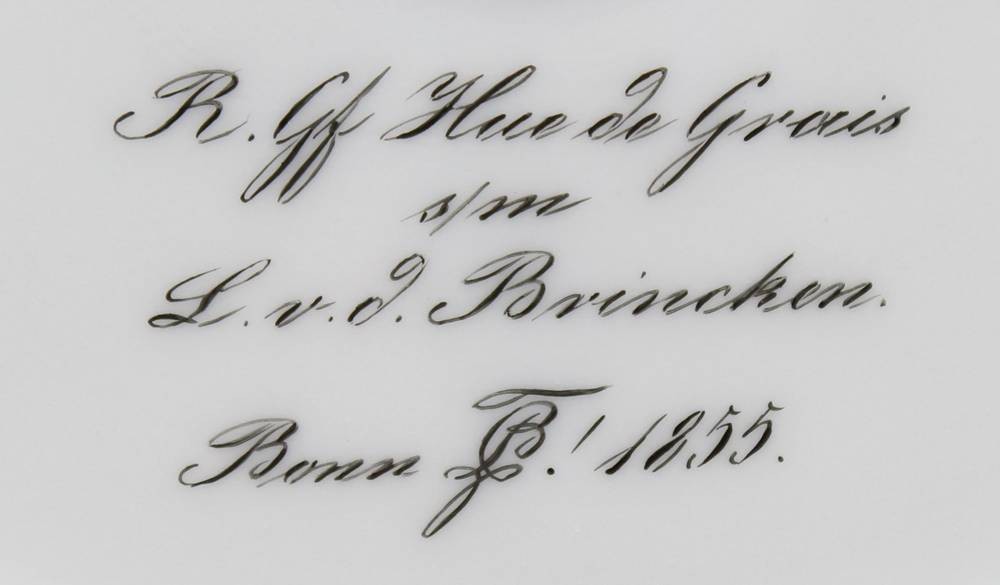 R. Gf Hue de Grais
s/m
L. v. d. Brincken.
Bonn ! 1855.